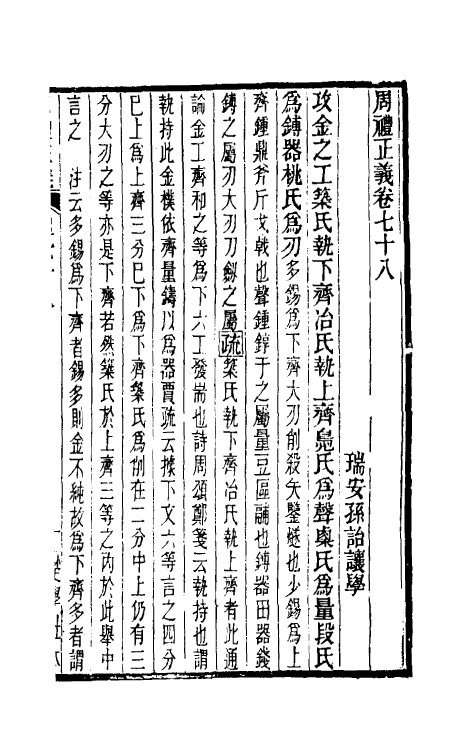 周禮正義卷七十八
瑞安孫詒讓學
攻金之工築氏執下齊冶氏執上齊鳧氏爲聲㮚氏爲量段氏
爲鎛器桃氏爲刃多錫爲下齊大刃削殺矢鑒燧也少錫爲上
齊鍾鼎斧斤戈戟也聲鍾錞于之屬量豆區鬴也鎛器田器錢
鎛之屬刃大刃刀劒之屬疏築氏執下齊冶氏執上齊者此通
論金工齊和之等爲下六工發耑也詩周頌鄭箋云執持也謂
執持此金樸依齊量鑄以爲器賈疏云據下文六等言之四分
已上爲上齊三分已下爲下齊築氏爲削在二分中上仍有三
分大刃之等亦是下齊若然築氏於上齊三等之內於此舉中
言之　注云多錫爲下齊者錫多則金不純故爲下齊多者謂